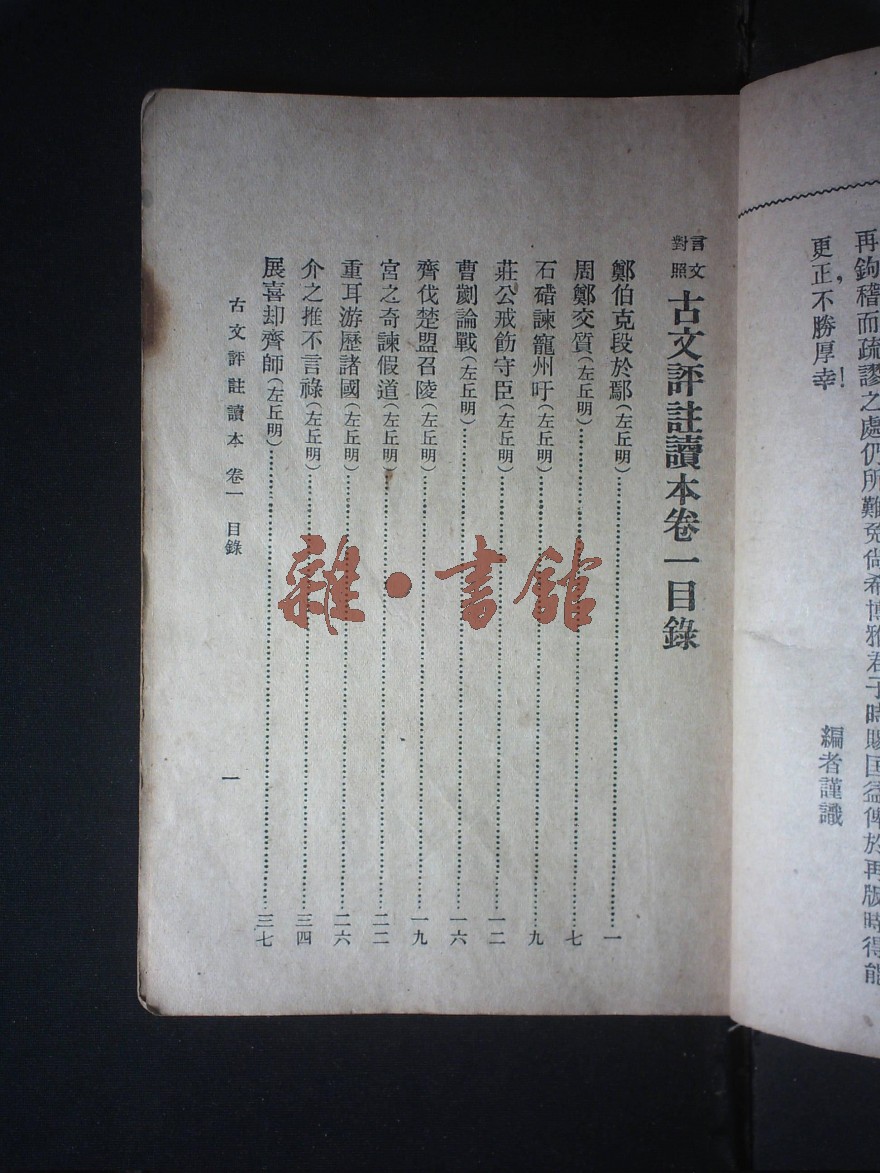 再鉤稽而疏謬之處仍所難免尚希博雅君子時賜匡益俾於再版時得能
更正,不勝厚幸!
編者謹識
言文對照 古文評註讀本卷一目錄
鄭伯克段於鄢(左丘明)……一
周鄭交質(左丘明)……七
石碏諫寵州吁(左丘明)……九
莊公戒飭守臣(左丘明)……一二
曹劌論戰(左丘明)……一六
齊伐楚盟召陵(左丘明)……一九
宮之奇諫假道(左丘明)……二二
重耳游歷諸國(左丘明)……二六
介之推不言祿(左丘明)……三四
展喜却齊師(左丘明)……三七
古文評註讀本 卷一 目錄
一
雜·書館